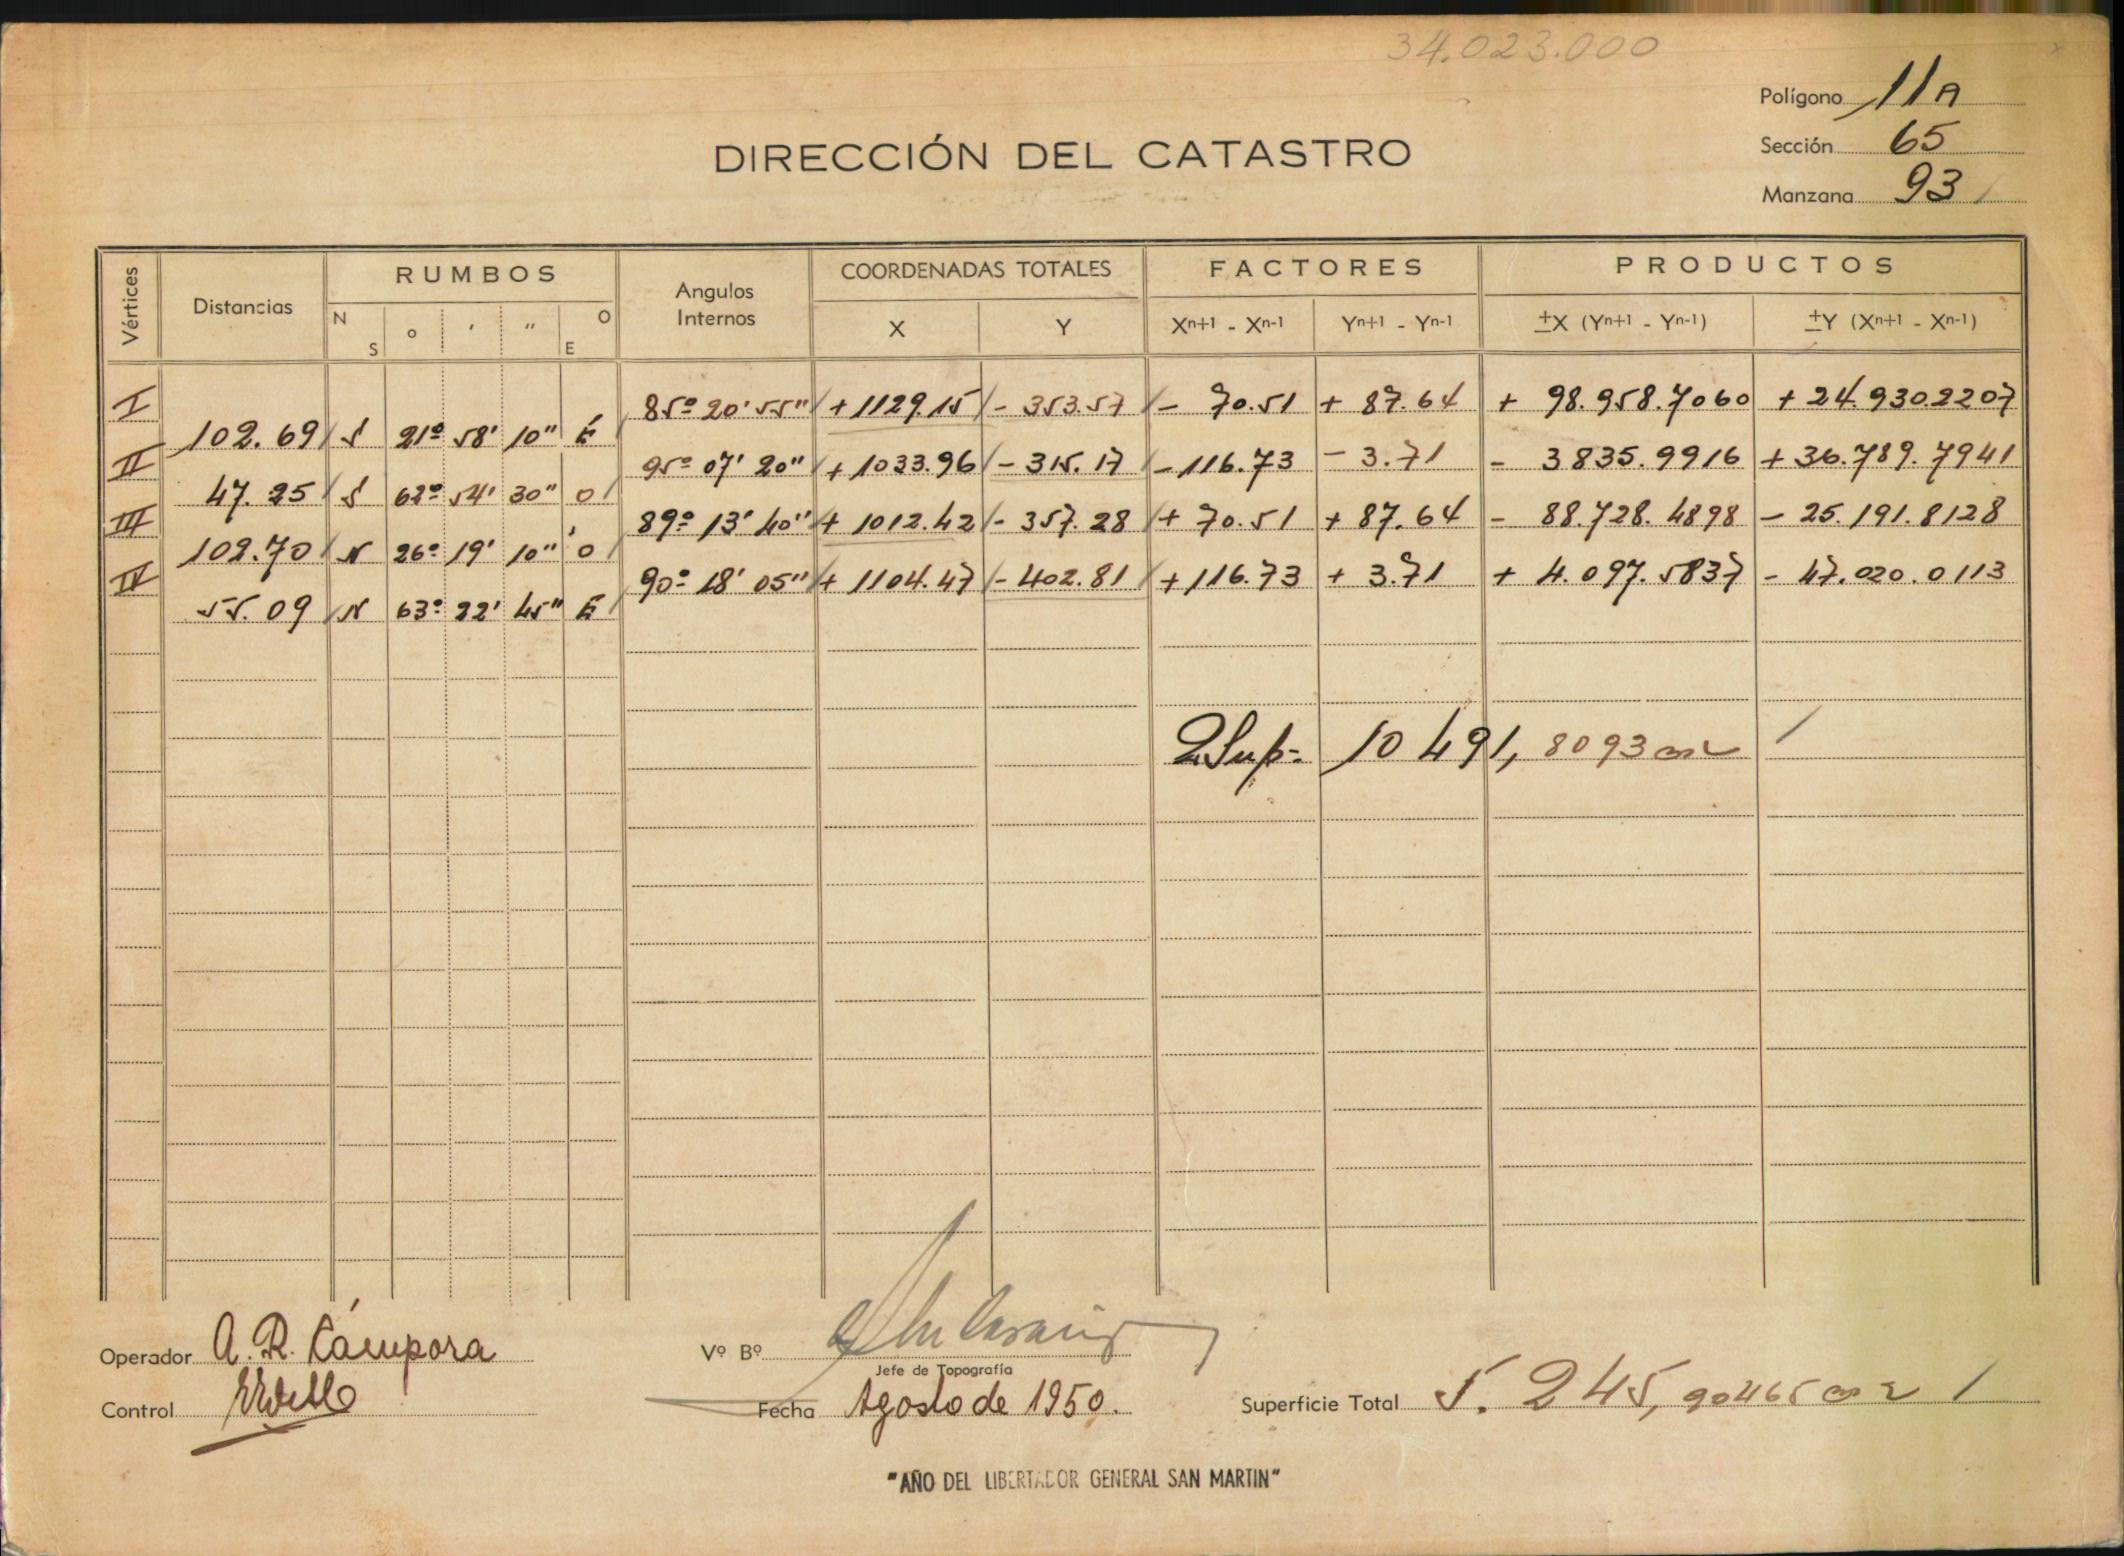 34.023.000
Polígono 11A
DIRECCIÓN DEL CATASTRO
Sección 65
Manzana 93
Vértices Distancias RUMBOS Angulos Internos COORDENADAS TOTALES FACTORES PRODUCTOS
N S o ' " O E X Y Xn+1 - Xn-1 Yn+1 - Yn-1 ±X (Yn+1 - Yn-1) ±Y (Xn+1 - Xn-1)
I 85º 20' 55" + 1129.15 - 353.57 - 70.51 + 87.64 + 98.958.7060 + 24.930.2207
102.69 S 21º 58' 10" E
II 95º 07' 20" + 1033.96 - 315.17 - 116.73 - 3.71 - 3835.9916 + 36.789.7941
47.25 S 62º 54' 30" O
III 89º 13' 40" + 1012.42 - 357.28 + 70.51 + 87.64 - 88.728.4898 - 25.191.8128
102.70 N 26º 19' 10" O
IV 90º 18' 05" + 1104.47 - 402.81 + 116.73 + 3.71 + 4.097.5837 - 47.020.0113
55.09 N 63º 22' 45" E
2Sup= 10 491, 8093 m2
Operador A. R. Cámpora
Vº Bº
Jefe de Topografía
Control
Fecha Agosto de 1950.
Superficie Total 5.245,90465 m2
"AÑO DEL LIBERTADOR GENERAL SAN MARTIN"